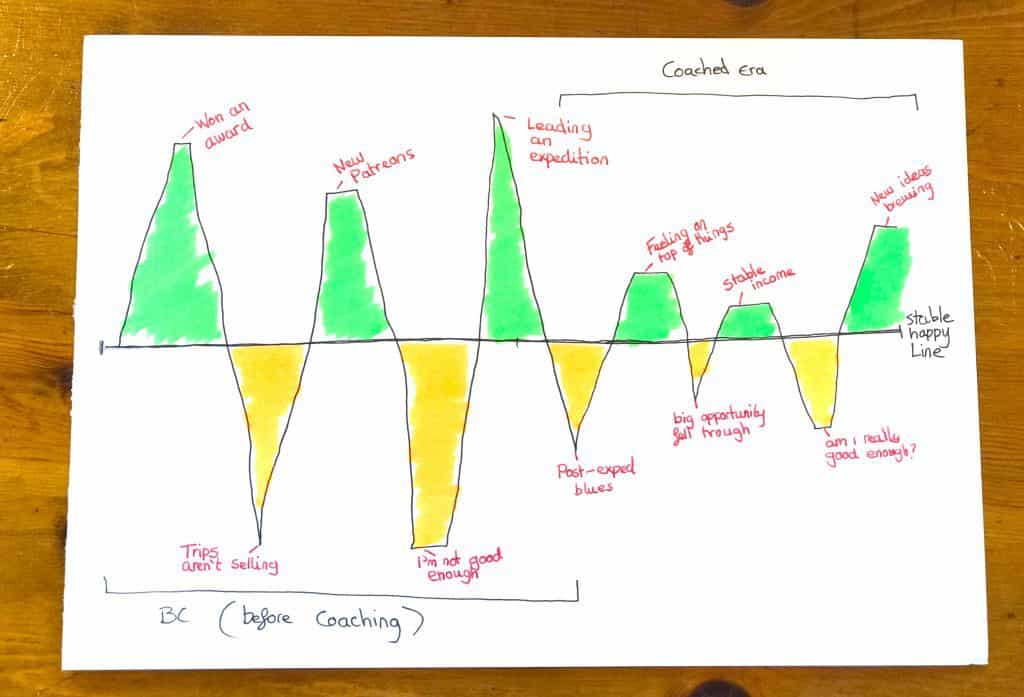 Coached era
Won an
award
New
Patreons
Leading
an
expedition
Feeling on
top of things
stable
income
New ideas
brewing
stable
happy
Line
Trips
aren't selling
I'm not good
enough
Post-exped
blues
big opportunity
fell trough
am i really
good enough?
BC (before Coaching)